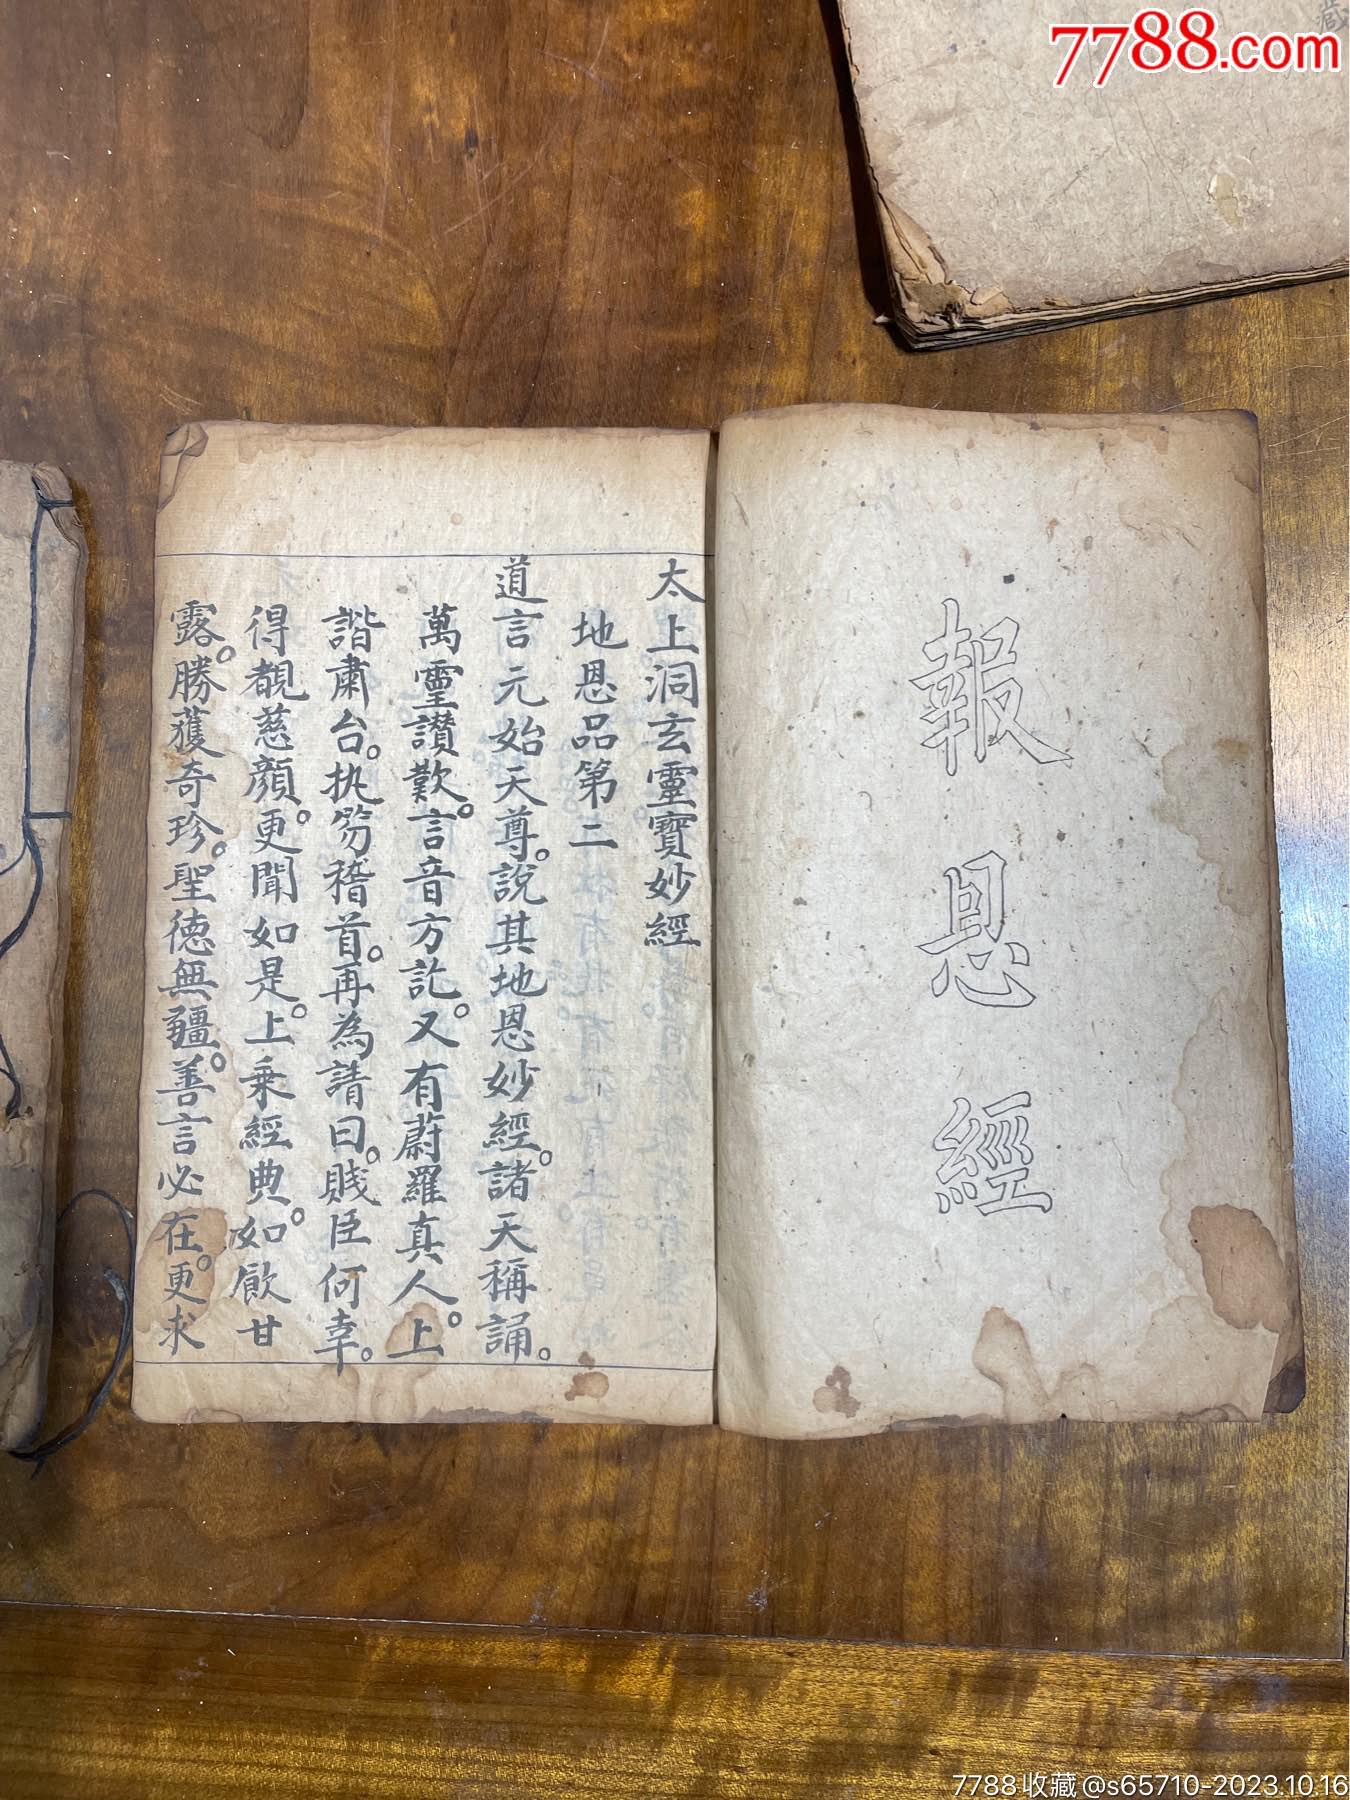 7788.com
藏
報恩經
太上洞玄靈寶妙經
地恩品第二
道言元始天尊。說其地恩妙經。諸天稱誦。
萬靈讃歎。言音方訖。又有蔚羅真人。上
諧肅台。执笏稽首。再為請曰。賤臣何幸。
得覩慈顏。更聞如是。上乘經典。如飲甘
露。勝獲奇珍。聖德無疆。善言必在。更求
7788收藏@s65710-2023.10.16